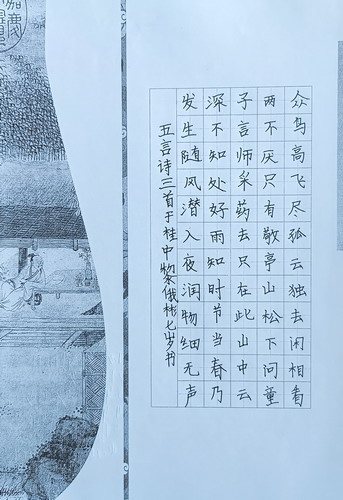 众鸟高飞尽孤云独去闲相看
两不厌只有敬亭山松下问童
子言师采药去只在此山中云
深不知处好雨知时节当春乃
发生随风潜入夜润物细无声
五言诗三首于桂中七岁书